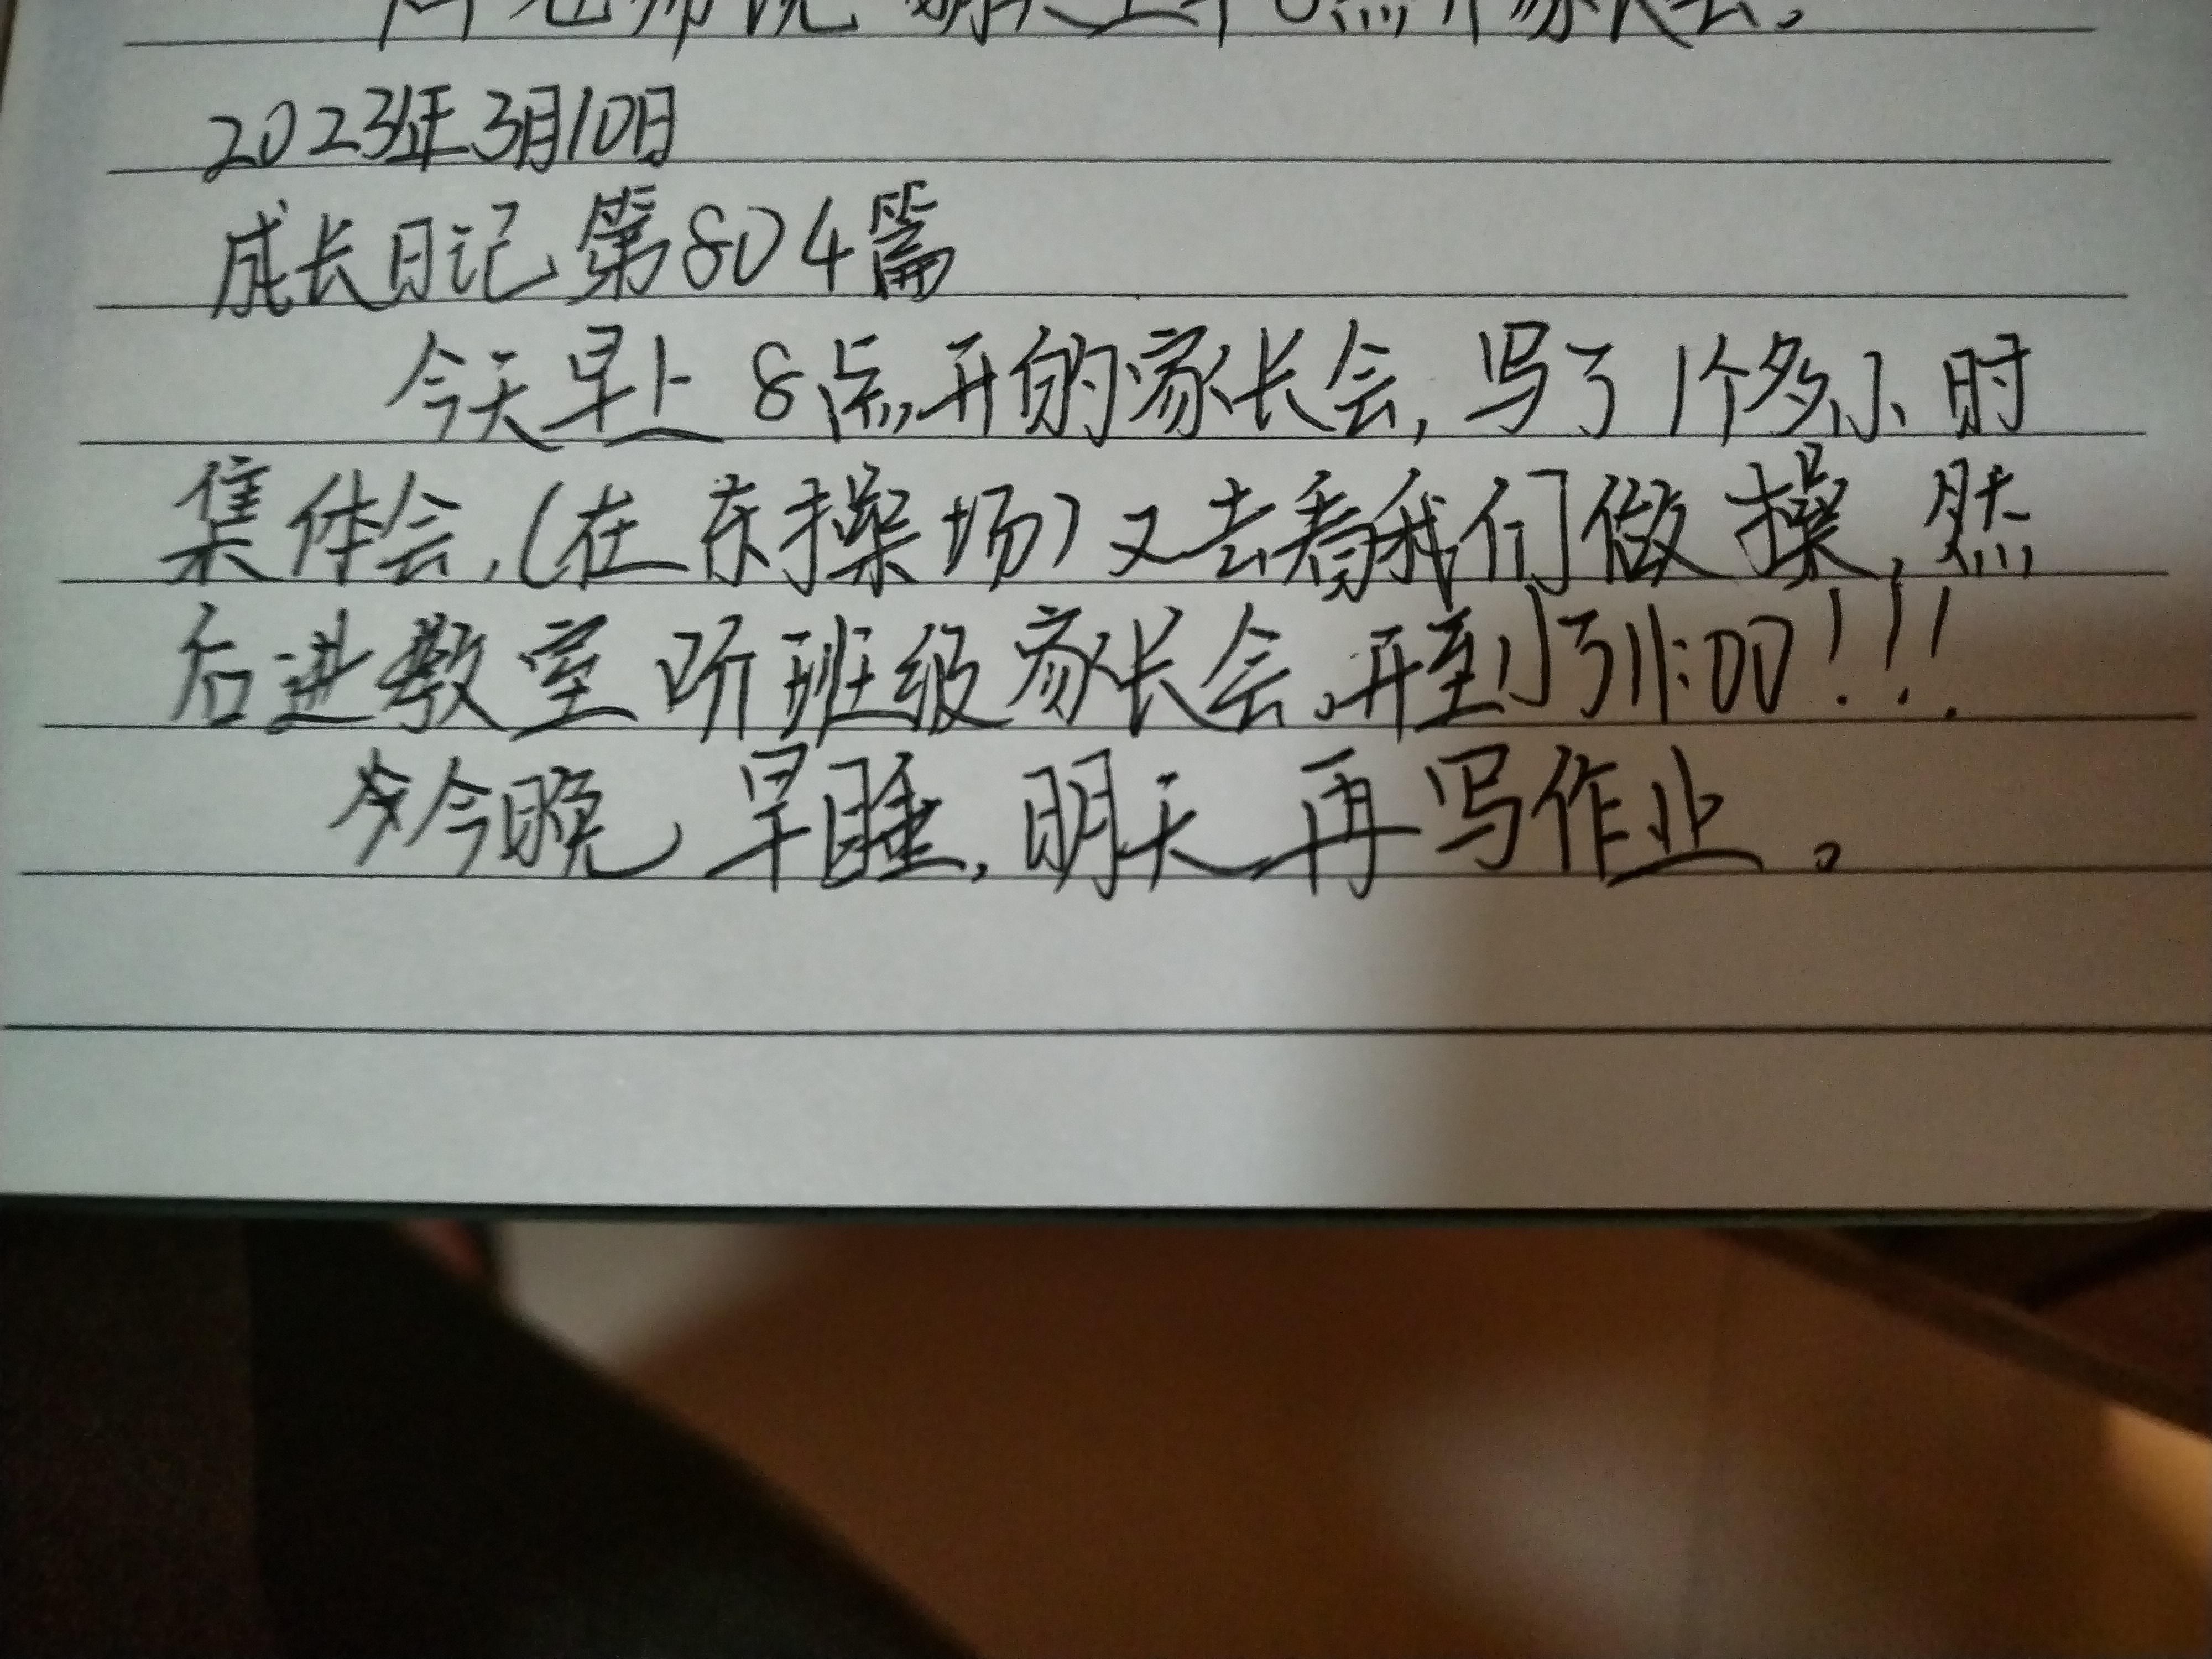 老师说明天上午8点开家长会。
2023年3月10日
成长日记第804篇
今天早上8点开的家长会,写了1个多小时
集体会,(在东操场)又去看我们做操,然
后进教室听班级家长会。开到了11:00!!!
今晚早睡,明天再写作业。